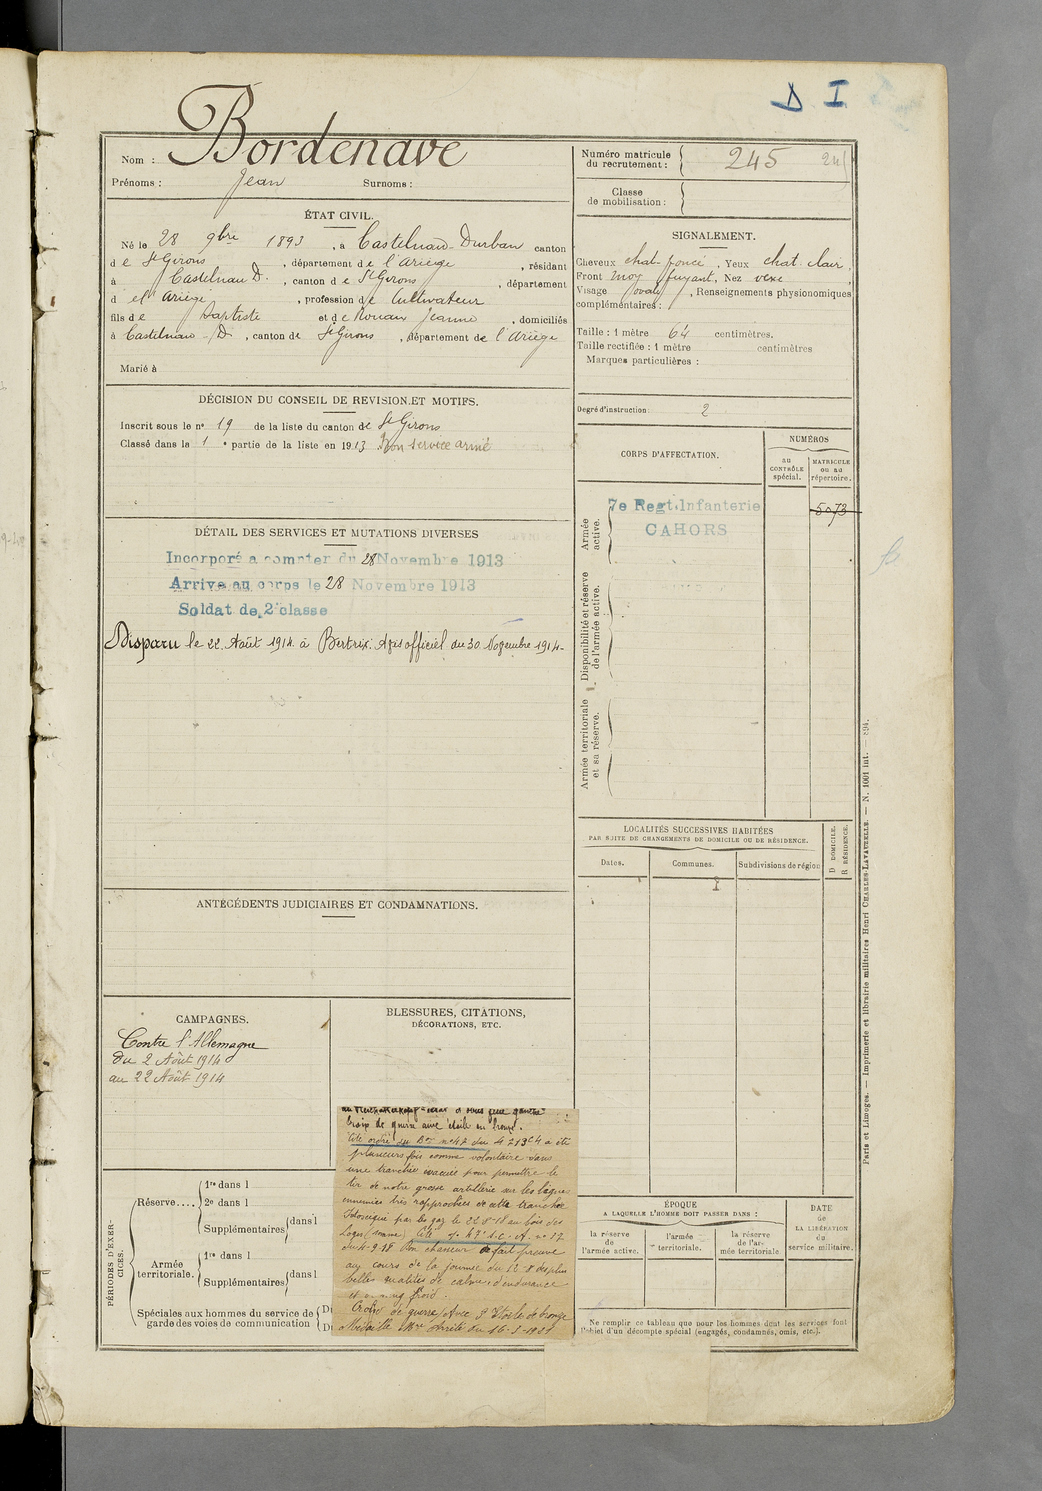 D I
Nom : Bordenave
Prénoms : Jean Surnoms :
ÉTAT CIVIL.
Né le 28 9bre 1893, à Castelnau-Durban canton
de St Girons, département de l'Ariège, résidant
à Castelnau D., canton de St Girons, département
d el' Ariège, profession de Cultivateur
fils de Baptiste et de Rouan Jeanne, domiciliés
à Castelnau-D, canton de St Girons, département de l'Ariège
Marié à
DÉCISION DU CONSEIL DE REVISION ET MOTIFS.
Inscrit sous le n° 19 de la liste du canton de St Girons
Classé dans la 1e partie de la liste en 1913 Bon service armé
DÉTAIL DES SERVICES ET MUTATIONS DIVERSES
Incorporé a compter du 28 Novembre 1913
Arrivé au corps le 28 Novembre 1913
Soldat de 2e classe
Disparu le 22 Août 1914 à Bertrix. Avis officiel du 30 Novembre 1914.
ANTÉCÉDENTS JUDICIAIRES ET CONDAMNATIONS.
CAMPAGNES.
Contre l'Allemagne
du 2 Août 1914
au 22 Août 1914
BLESSURES, CITATIONS,
DÉCORATIONS, ETC.
Croix de guerre avec étoile en bronze.
Cité ordre
plusieurs fois comme volontaire dans
une tranchée évacuée pour permettre le
tir de notre grosse artillerie sur les lignes
ennemies très rapprochées de cette tranchée
Intoxiqué par les gaz le au bois des
Loges n° 17
du 4-9-18 Bon chasseur a fait preuve
au cours de la journée du des plus
belles qualités de calme, d'endurance
et de sang froid.
Croix de guerre Avec Étoile de bronze
Médaille Mre arrêté du 16-3-
PÉRIODES D'EXERCICES.
Réserve....
1re dans l
2e dans l
Supplémentaires dans l
Armée territoriale.
1re dans l
Supplémentaires dans l
Spéciales aux hommes du service de
garde des voies de communication
Numéro matricule
du recrutement : 245
Classe
de mobilisation :
SIGNALEMENT.
Cheveux chat. foncé, Yeux chat. clair,
Front moy fuyant, Nez vexe
Visage ovale, Renseignements physionomiques
complémentaires :
Taille : 1 mètre 64 centimètres.
Taille rectifiée : 1 mètre centimètres
Marques particulières :
Degré d'instruction : 2
CORPS D'AFFECTATION.
NUMÉROS
au
CONTRÔLE
spécial.
MATRICULE
ou au
répertoire.
Armée
active.
7e Regt. Infanterie
CAHORS
5073
Disponibilité et réserve
de l'armée active.
Armée territoriale
et sa réserve.
LOCALITÉS SUCCESSIVES HABITÉES
PAR SUITE DE CHANGEMENTS DE DOMICILE OU DE RÉSIDENCE.
Dates.
Communes.
Subdivisions de région
D DOMICILE.
R RÉSIDENCE.
ÉPOQUE
A LAQUELLE L'HOMME DOIT PASSER DANS :
la réserve
de
l'armée active.
l'armée
territoriale.
la réserve
de l'ar-
mée territoriale
DATE
de
LA LIBÉRATION
du
service militaire.
Ne remplir ce tableau que pour les hommes dont les services font
l'objet d'un décompte spécial (engagés, condamnés, omis, etc.).
Paris et Limoges. — Imprimerie et librairie militaires Henri CHARLES-LAVAUZELLE. — N. 1001 int. — 894.